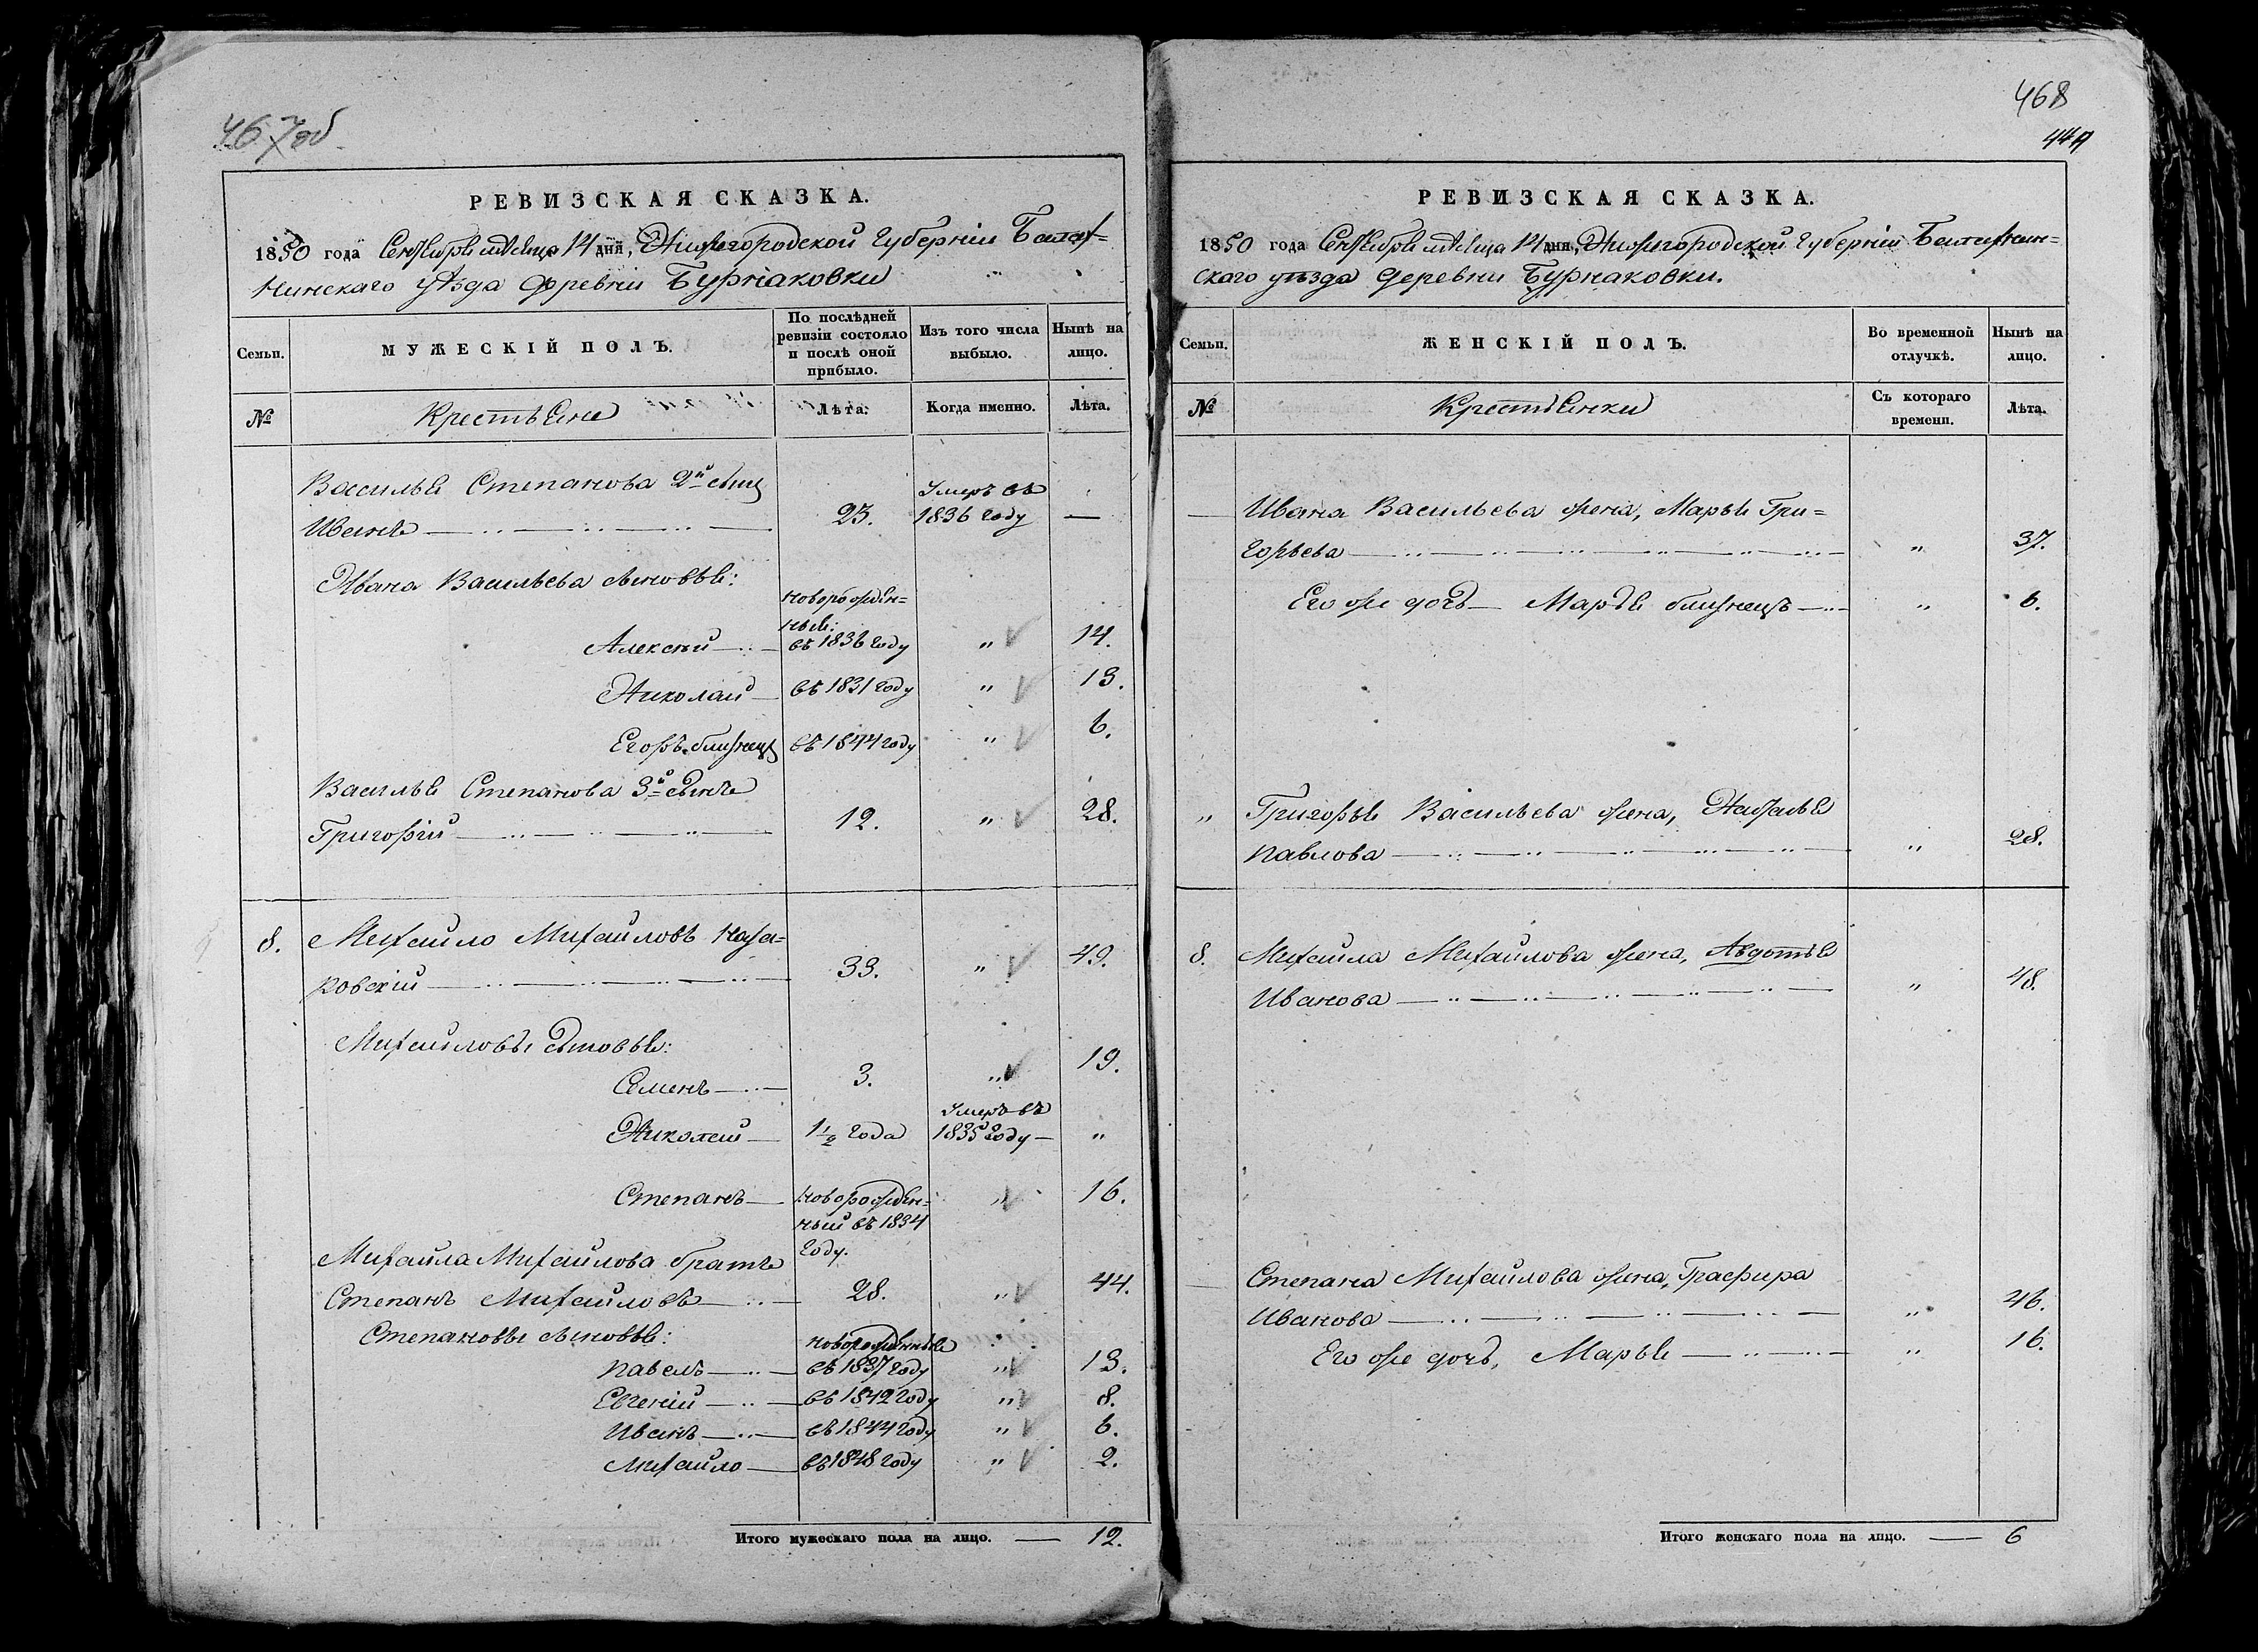 467об
РЕВИЗСКАЯ СКАЗКА.
1850 года Сентября мѣсяца 14 дня, Нижегородской Губерніи Балах=
нинскаго уѣзда деревни Бурнаковки
Семьи.
МУЖЕСКІЙ ПОЛЪ.
По послѣдней ревизіи состояло и послѣ оной прибыло.
Изъ того числа выбыло.
Нынѣ на лицо.
№
Крестьяне
Лѣта.
Когда именно.
Лѣта.
Василья Степанова 2й сынъ
Иванъ 25. Умеръ въ 1836 году —
Ивана Васильева сыновья:
новорожден=
ные:
Алексѣй въ 1836 году " 14.
Николай въ 1831 году " 13.
Егоръ близнецъ въ 1844 году " 6.
Василья Степанова 3й сынъ
Григорій 12. " 28.
8. Михайло Михайловъ Наза=
ровскій 33. " 49.
Михайловы сыновья:
Семенъ 3. " 19.
Николай 1½ года Умеръ въ 1835 году — "
Степанъ новорожден=
ный въ 1834
году. " 16.
Михайла Михайлова братъ
Степанъ Михайловъ 28. " 44.
Степановы сыновья: новорожденные
Павелъ въ 1837 году " 13.
Евгеній въ 1842 году " 8.
Иванъ въ 1844 году " 6.
Михайло въ 1848 году " 2.
Итого мужескаго пола на лицо. — 12.
468
РЕВИЗСКАЯ СКАЗКА.
1850 года Сентября мѣсяца 14 дня, Нижегородской Губерніи Балахнин=
скаго уѣзда деревни Бурнаковки.
Семьи.
ЖЕНСКІЙ ПОЛЪ.
Во временной отлучкѣ.
Нынѣ на лицо.
№
Крестьянки
Съ котораго времени.
Лѣта.
— Ивана Васильева жена, Марья Гри=
горьева " 37.
Его же дочь — Марья близнецъ " 6.
" Григорья Васильева жена, Наталья
Павлова " 28.
8. Михайла Михайлова жена, Авдотья
Иванова " 48.
— Степана Михайлова жена, Глафира
Иванова " 46.
Его же дочь, Марья " 16.
Итого женскаго пола на лицо. — 6